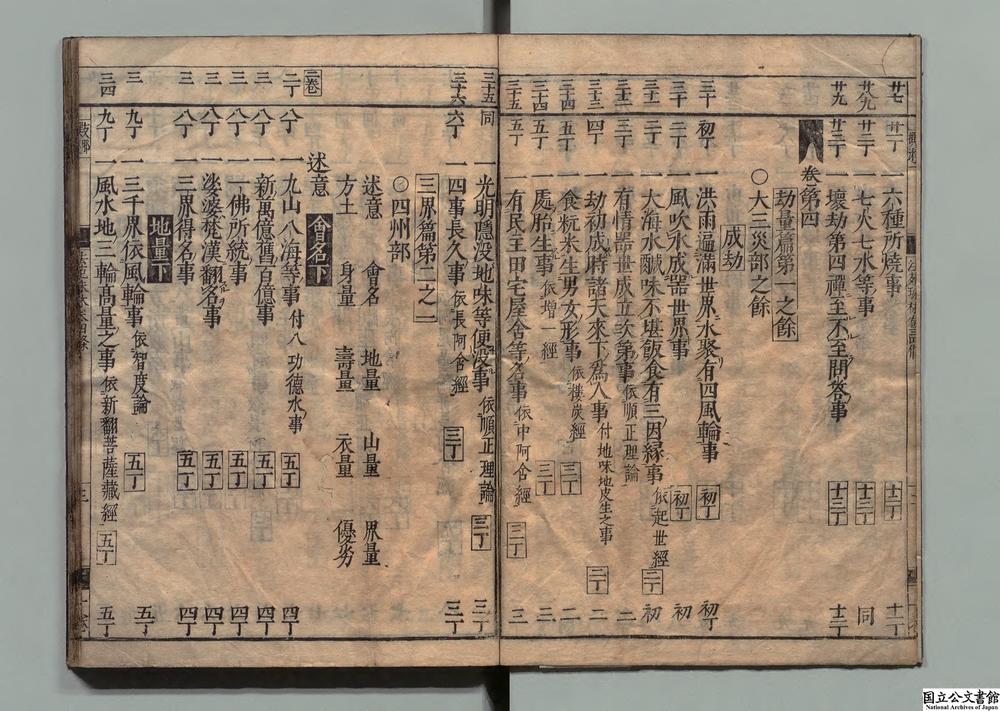 廿七 廿一丁 一六種所燒事 十二丁 十一丁
廿九 廿二丁 一七火七水等事 十三丁 同
廿九 廿三丁 一壞劫第四禪至不至問答事 十三丁 十二丁
卷第四
劫量篇第一之餘
○大三災部之餘
成劫
三十 初丁 一洪雨遍滿世界水聚有四風輪事 初丁 初丁
三十 二丁 一風吹水成器世界事 初丁 初
三十一 二丁 一大海水鹹味不堪飯食有三因緣事 依起世經 二丁 初
三十二 三丁 一有情器世成立次第事 依順正理論 二
三十三 四丁 一劫初成時諸天來下爲人事 付地味地皮生之事 二丁 二
三十四 五丁 一食粳米生男女形事 依樓炭經 三丁 二
三十四 五丁 一處胎生事 依增一經 三丁 三
三十五 五丁 一有民主田宅屋舍等名事 依中阿含經 三丁 三
三十五 同 一光明隱沒地味等便沒事 依順正理論 三丁 三丁
三十六 六丁 一四事長久事 依長阿含經 三丁 三丁
三界篇第二之一
○四州部
述意 會名 地量 山量 界量
方土 身量 壽量 衣量 優劣
述意 會名下
二卷
二丁 八丁 一九山八海等事 付八功德水事 五丁 四丁
三 八丁 新萬億舊百億事 五丁 四丁
三 八丁 一一佛所統事 五丁 四丁
三 八丁 娑婆梵漢翻名事 五丁 四丁
三 八丁 一三界得名事 五丁 四丁
地量下
三 九丁 一三千界依風輪事 依智度論 五丁 五丁
三四 九丁 一風水地三輪高量之事 依新翻菩薩藏經 五丁 五丁
国立公文書館
National Archives of Japan